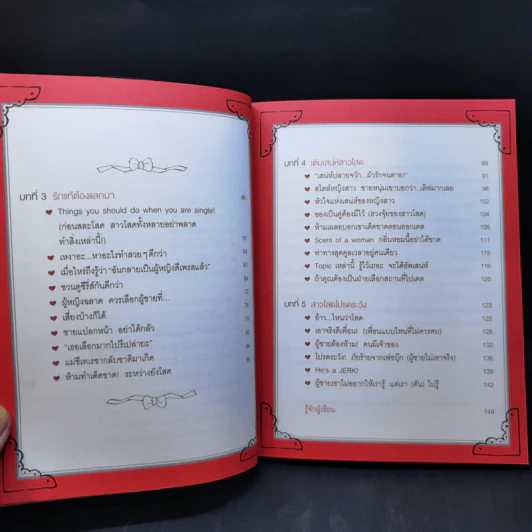 บทที่ 3 รักแท้ต้องแลกมา 49
Things you should do when you are single!
(ก่อนสละโสด สาวโสดทั้งหลายอย่าพลาด
ทำสิ่งเหล่านี้!)
เหงาอะ...หาอะไรทำสวยๆ ดีกว่า
เมื่อไหร่ถึงรู้ว่า "ฉันกลายเป็นผู้หญิงดีเพรสแล้ว"
ชวนดูซีรี่ส์กันดีกว่า
ผู้หญิงฉลาด ควรเลือกผู้ชายที่...
เสี่ยงบ้างก็ได้
ชายแปลกหน้า อย่าได้กลัว
"เธอเลือกมากไปรึเปล่ายะ"
แม่ชีเทเรซากลับชาติมาเกิด
ห้ามทำเด็ดขาด! ระหว่างยังโสด
บทที่ 4 เติมเสน่ห์สาวโสด 89
"เสน่ห์ปลายจวัก...ผัวรักจนตาย!" 91
สไตล์หญิงสาว ชายหนุ่มเขาบอกว่า..เลิฟมากเลย 98
หัวใจแห่งเสน่ห์ของหญิงสาว 102
ของเป็นคู่ต้องมีไว้ (ฮวงจุ้ยของสาวโสด) 104
ห้ามเผลอบอกเขาเด็ดขาดตอนออกเดต 108
Scent of a woman กลิ่นหอมนี้อย่าได้ขาด 111
ท่าทางสุดคูลเวลาอยู่คนเดียว 115
Topic เหล่านี้ รู้ไว้เถอะ จะได้อัพเสน่ห์ 118
ถ้าคุณต้องเป็นฝ่ายเลือกสถานที่ไปเดต 120
บทที่ 5 สาวโสดโปรดระวัง 123
อ้าว...ไหนว่าโสด 125
เอาจริงดิเพื่อน! (เพื่อนแบบไหนที่ไม่ควรคบ) 128
ผู้ชายต้องห้าม! คนมีเจ้าของ 132
โปรดระวัง! ภัยร้ายจากเฟซบุ๊ก (ผู้ชายไม่เอาจริง) 136
He's a JERK! 139
ผู้ชายเขาไม่อยากให้เรารู้ แต่เรา (ดัน) ไปรู้ 142
รู้จักผู้เขียน 149